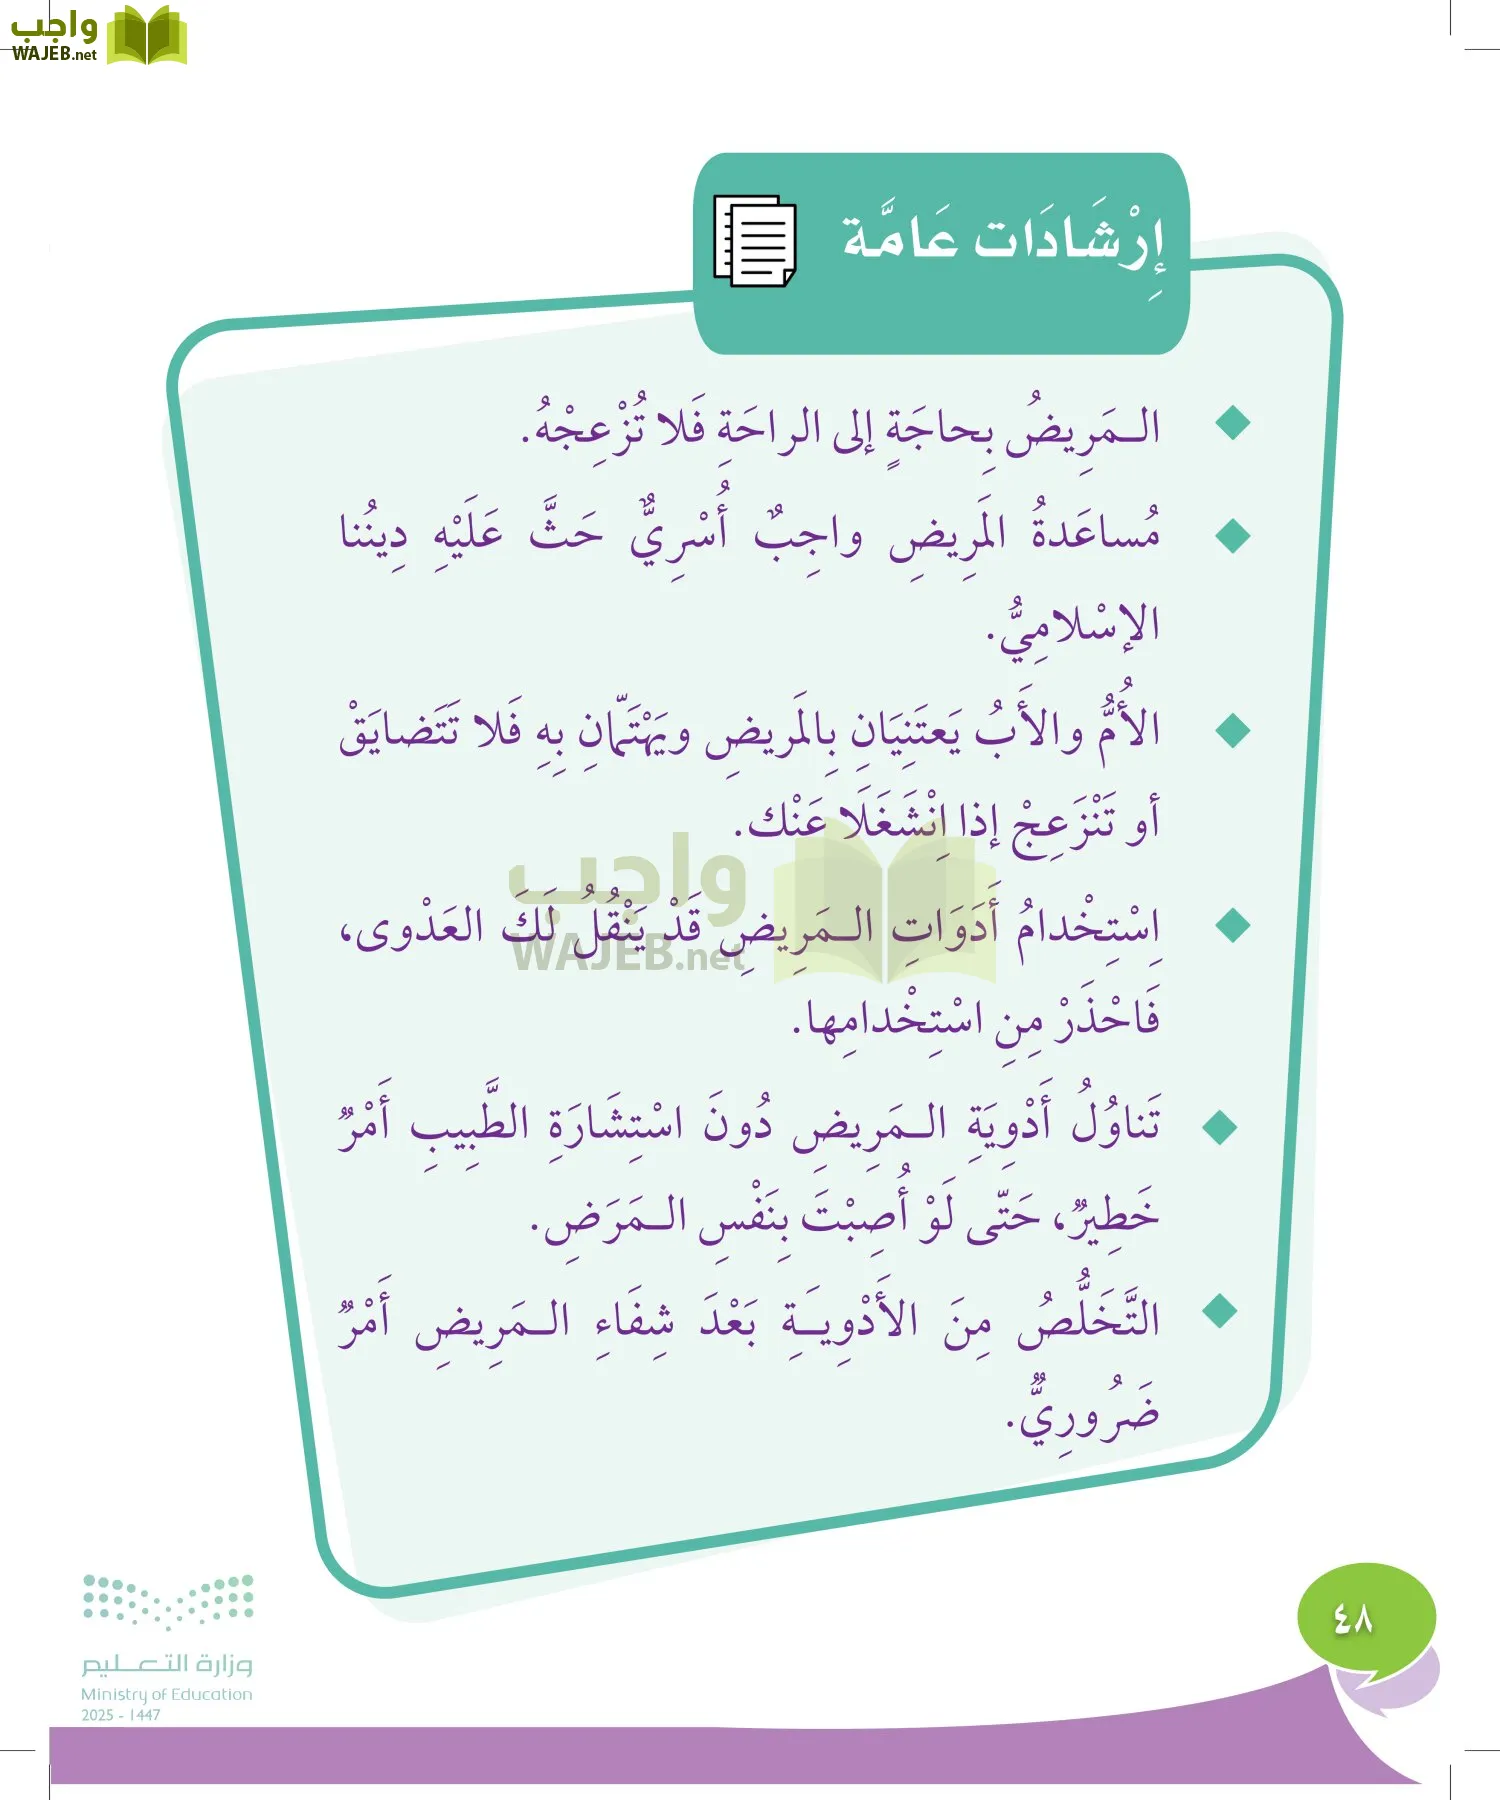 واجب
WAJEB.net
إِرْشَادَات عَامَّة
الـمَرِيضُ بِحاجَةٍ إلى الراحَةِ فَلا تُزْعِجْهُ.
مُساعَدةُ المَرِيضِ واجِبٌ أُسْرِيٌّ حَثَّ عَلَيْهِ دِينُنا
الإسْلامِيُّ.
الأُمُّ والأَبُ يَعتَنِيَانِ بِالمَريضِ ويَهْتَمّانِ بِهِ فَلا تَتَضايَقْ
أو تَنْزَعِجْ إذا اِنْشَغَلَا عَنْك.
واجب
WAJEB.net
اِسْتِخْدامُ أَدَوَاتِ الـمَرِيضِ قَدْ يَنْقُلُ لَكَ العَدْوى،
فَاحْذَرْ مِنِ اسْتِخْدامِها.
تَناوُلُ أَدْوِيَةِ الـمَرِيضِ دُونَ اسْتِشَارَةِ الطَّبِيبِ أَمْرٌ
خَطِيرٌ، حَتّى لَوْ أُصِبْتَ بِنَفْسِ الـمَرَضِ.
التَّخَلُّصُ مِنَ الأَدْوِيَـةِ بَعْدَ شِفَاءِ الـمَرِيضِ أَمْرٌ
ضَرُورِيٌّ.
٤٨
وزارة التعـليم
Ministry of Education
2025 - 1447